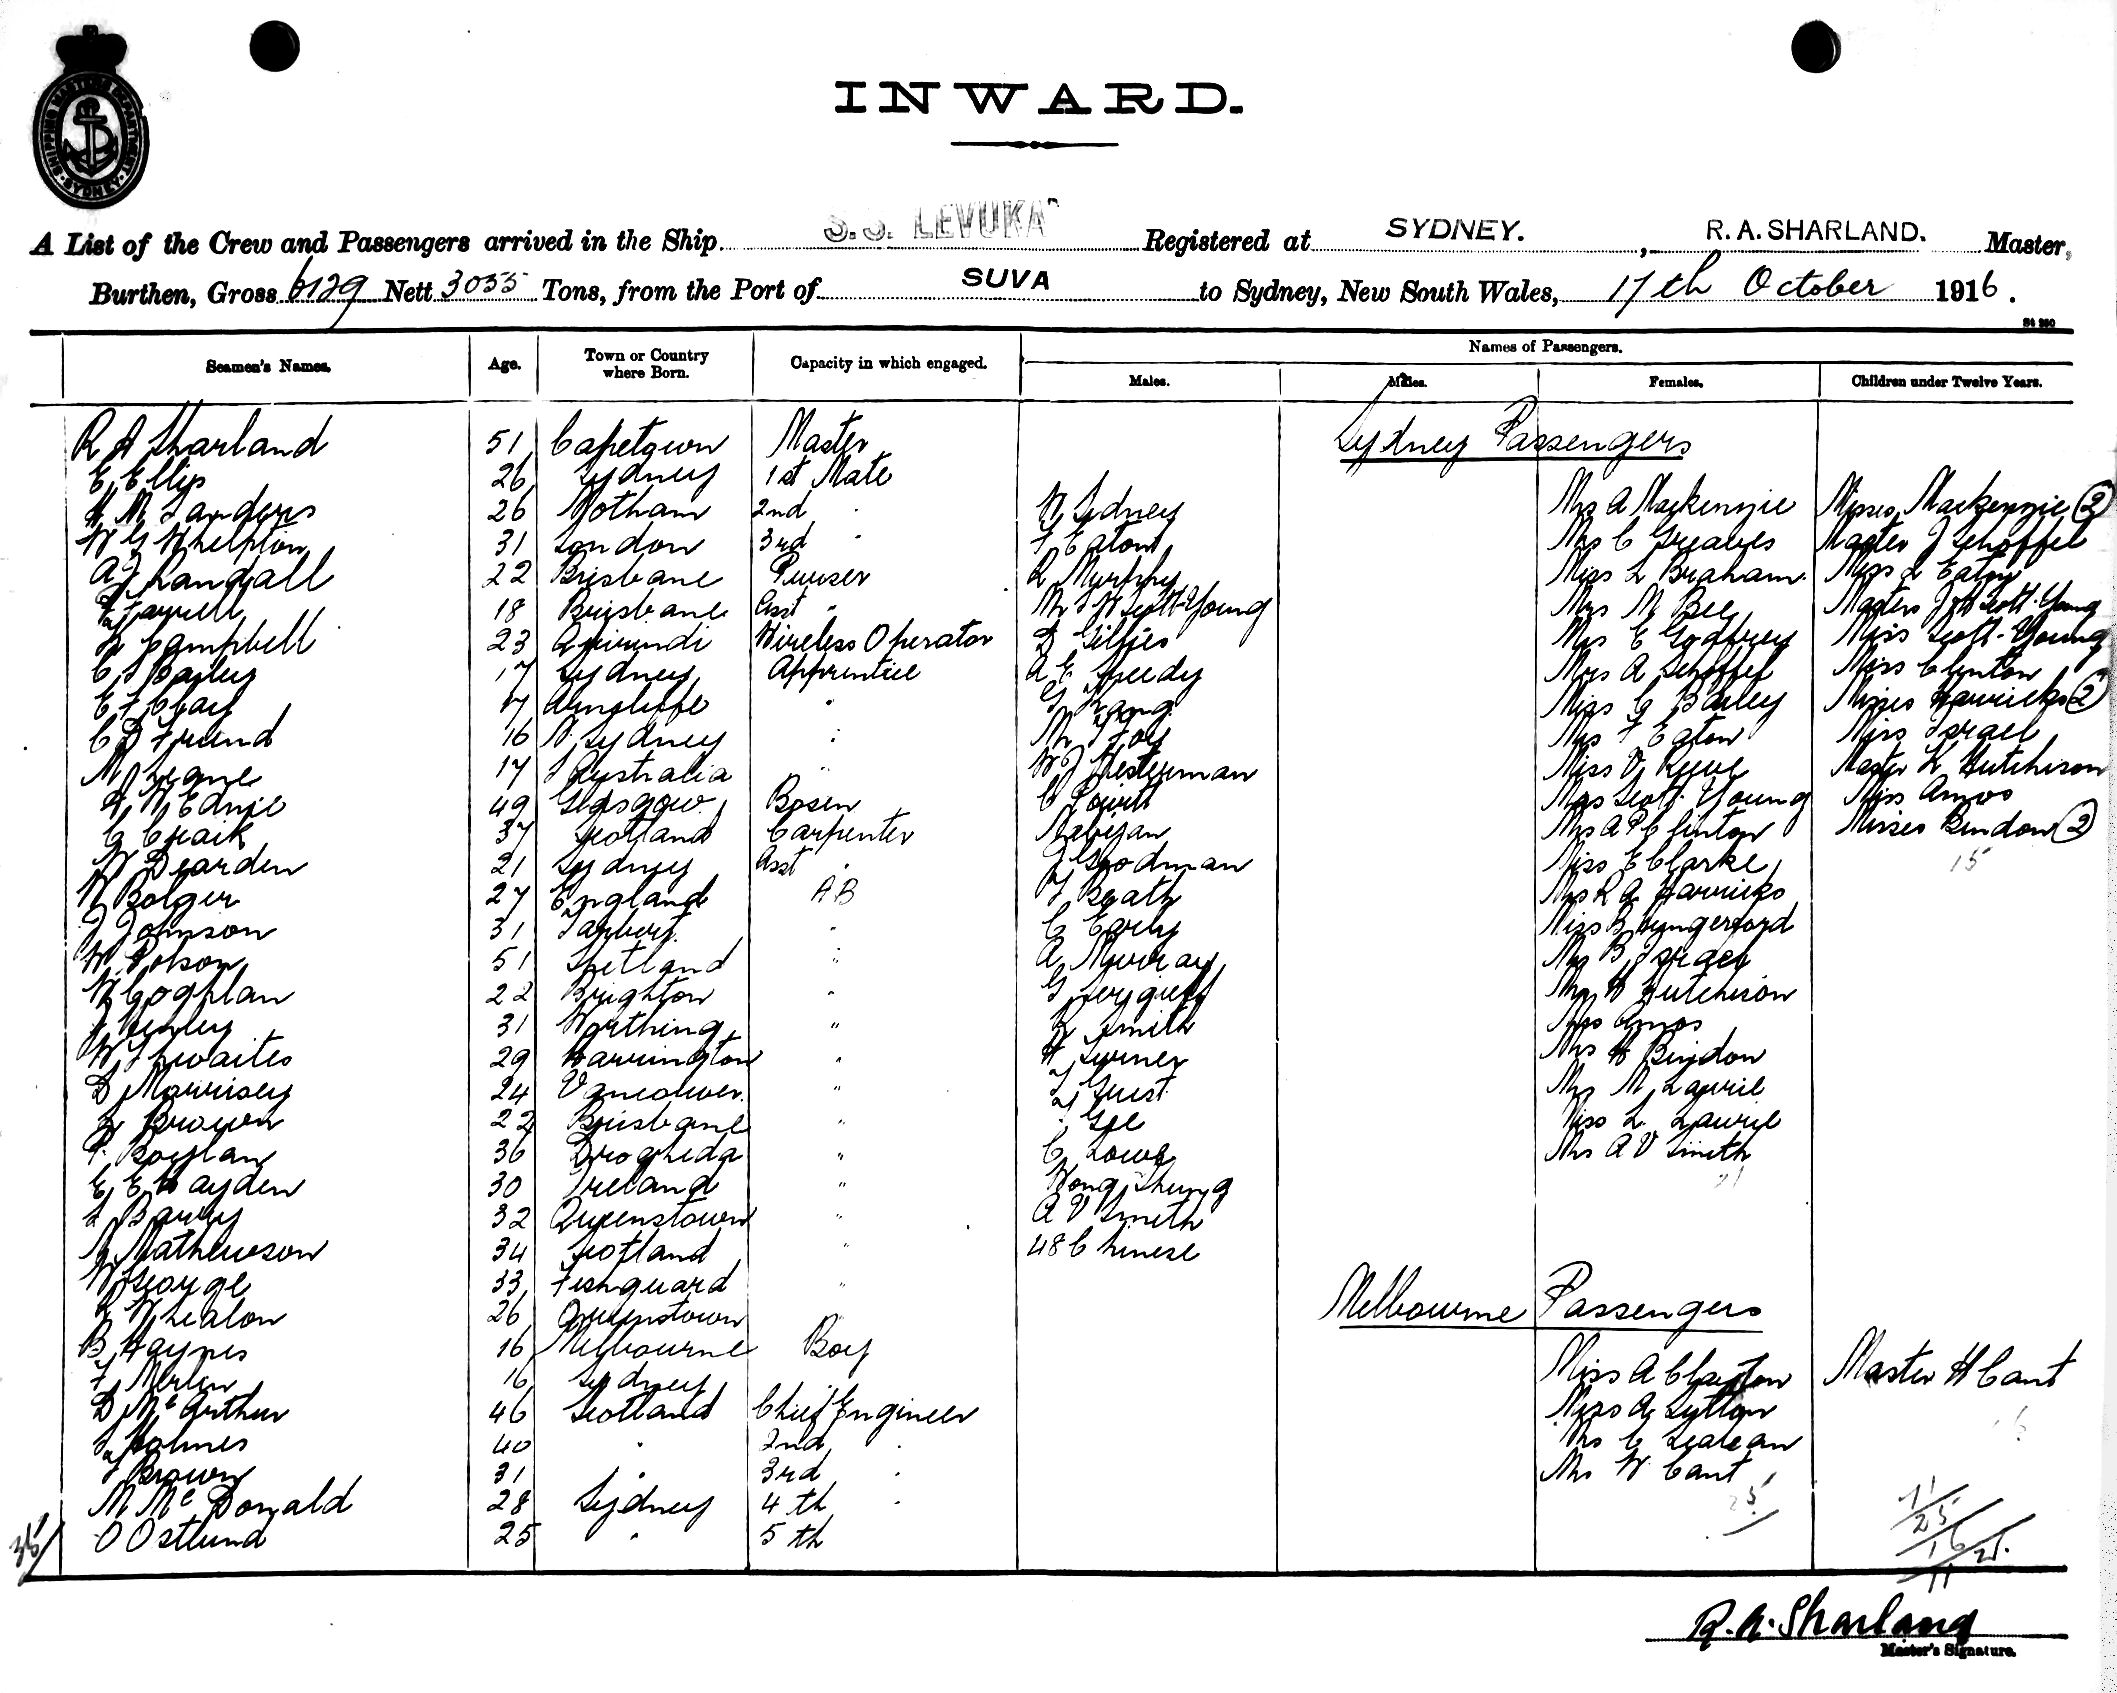 SHIPPING MASTERS DEPARTMENT
SYDNEY
INWARD.
A List of the Crew and Passengers arrived in the Ship S.S. LEVUKA Registered at SYDNEY. , R. A. SHARLAND. Master,
Burthen, Gross 6129 Nett 3055 Tons, from the Port of SUVA to Sydney, New South Wales, 17th October 1916.
St 250
Seamen's Names. Age. Town or Country where Born. Capacity in which engaged. Names of Passengers.
Males. Males. Females. Children under Twelve Years.
Sydney Passengers
R A Sharland 51 Capetown Master
E Ellis 26 Sydney 1st Mate
H M Sanders 26 Notham 2nd "
W G Whelpton 31 London 3rd "
A J Randall 22 Brisbane Purser
Farrell 18 Brisbane Asst "
Campbell 23 Quirindi Wireless Operator
C S Bailey 17 Sydney Apprentice
E F Clay 17 Arncliffe "
C D Friend 16 N. Sydney "
M J Keane 17 S Australia "
A W Ednie 49 Glasgow Bosen
G Craik 37 Scotland Carpenter
W Dearden 21 Sydney Asst "
W Bolger 27 England AB
J Johnson 31 Tarbert "
W. Polson 51 Shetland "
W Coghlan 22 Brighton "
Henley 31 Worthing "
W Thwaites 29 Harrington "
D Morrisey 24 Vancouver "
Brown 22 Brisbane "
P. Boylan 36 Drogheda "
E E Hayden 30 Ireland "
Barry 32 Queenstown "
Mathewson 34 Scotland "
W George 33 Fishguard "
Whealon 26 Queenstown
B Haynes 16 Melbourne Boy
F Merlin 16 Sydney
D McArthur 46 Scotland Chief Engineer
Holmes 40 " 2nd "
Brown 31 " 3rd "
M McDonald 28 Sydney 4th "
O Ostlund 25 " 5th
35
N Sydney
F Eaton
R Murphy
Mr S W Scott-Young
D Gillies
A E Speedy
G Kang
M Foy
W J Westerman
C Powell
Nabijan
J Goodman
Heath
C Early
A Murray
G
Smith
H Turner
Guest
Gee
C Lowe
Wong Shung
A V Smith
48 Chinese
Mrs A Mackenzie
Mrs C Greaves
Miss L Braham
Mrs M Bee
Mrs E Godfrey
Mrs A Schoffel
Miss G Bailey
Mrs F Eaton
Miss V Reeve
Mrs Scott-Young
Mrs A P Clinton
Miss E Clarke
Mrs R A Harricks
Miss B Hungerford
Mrs B Israel
Mrs H Hutchison
Mrs Amos
Mrs H Bindon
Mrs M Lawrie
Miss L. Lawrie
Mrs A V Smith
21
Misses Mackenzie 2
Master J Schoffel
Miss L Eaton
Masters J H Scott-Young
Miss Scott-Young
Miss Clinton
Misses Harricks 2
Miss Israel
Master L Hutchison
Miss Amos
Misses Bindon 2
15
Melbourne Passengers
Miss A Clayton Master H Cant
Miss A Lytton
Mrs C
Mrs W Cant
25
11
25
16
11
R. A. Sharland
Master's Signature.